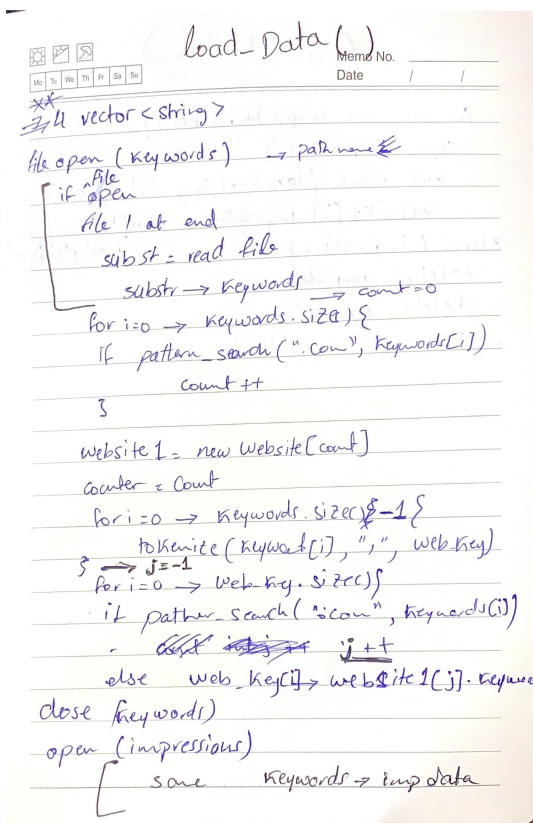 load_Data()
Memo No.
Mo Tu We Th Fr Sa Su
Date / /
**
4 vector <string>
file open (keywords) → path name
if file open
file 1 at end
subst = read file
substr → keywords
→ count=0
for i=0 → keywords.size() {
if pattern_search(".com", keywords[i])
count ++
}
website 1 = new Website[count]
counter = count
for i=0 → keywords.size()-1 {
tokenize (keyword[i], ",", web_key)
} → j=-1
for i=0 → web_key.size() {
if patter_search(".com", keywords[i])
j++
else web_key[i] → website 1[j].keywo
close (keywords)
open (impressions)
save keywords → imp data